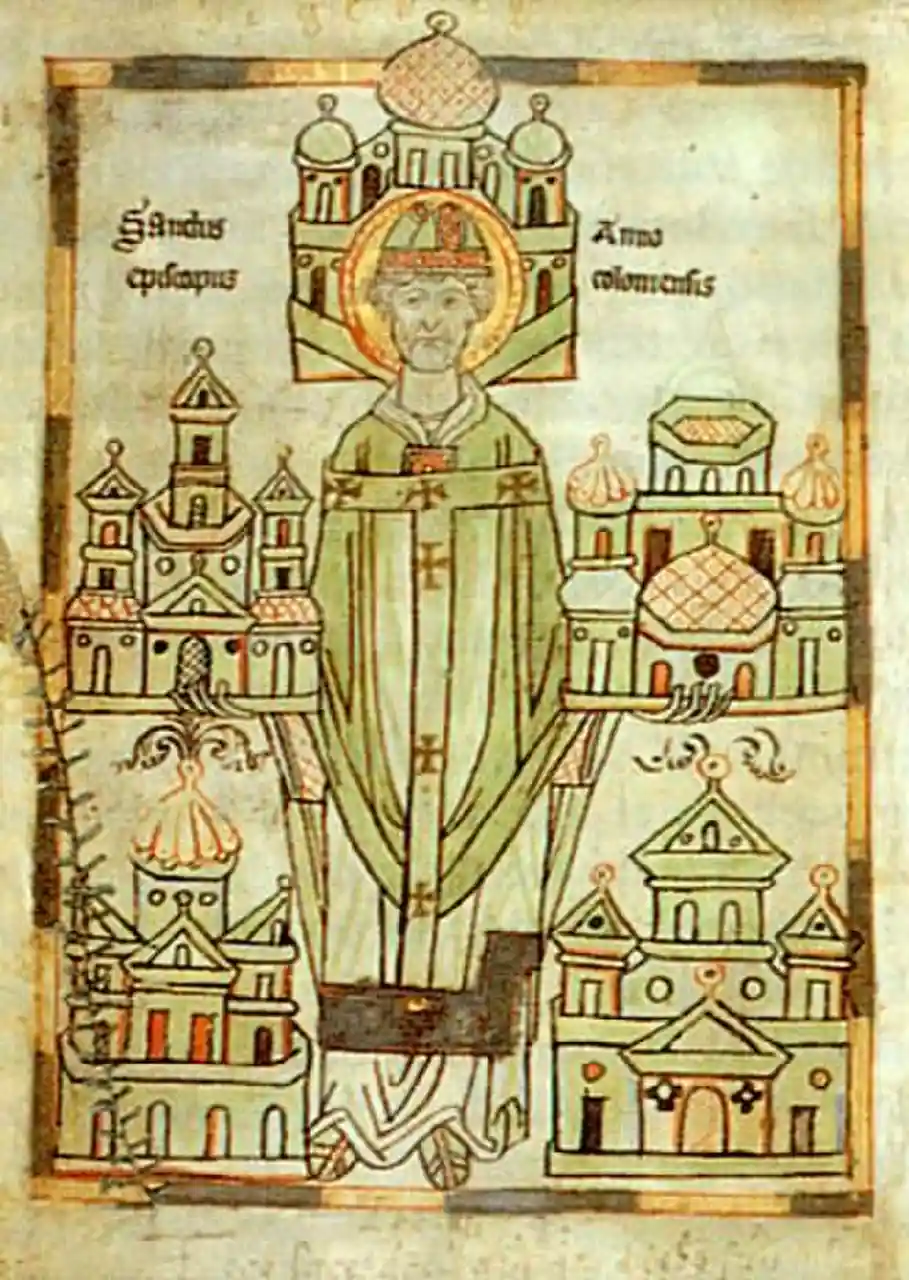 Sanctus Anno
episcopus coloniensis